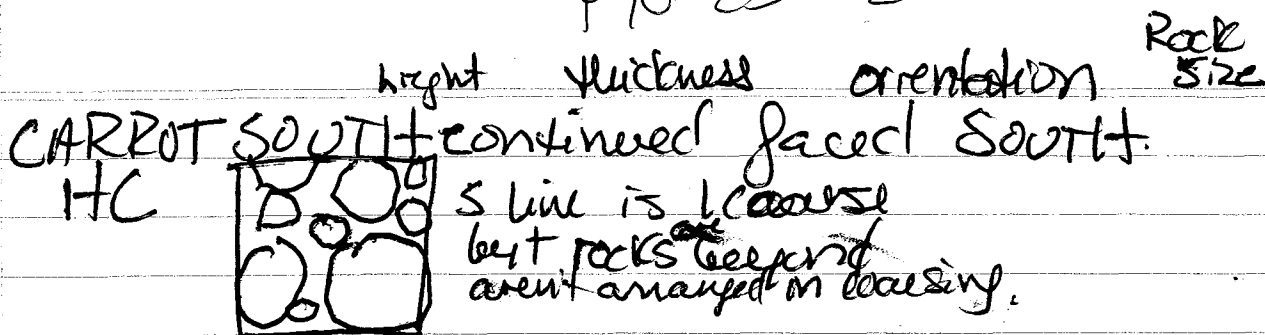 Rock
hieght thickness orientation Size
CARROT SOUTH continued faced SOUTH.
HC S line is 1 coarse
but rocks beyond
aren't arranged in coursing.